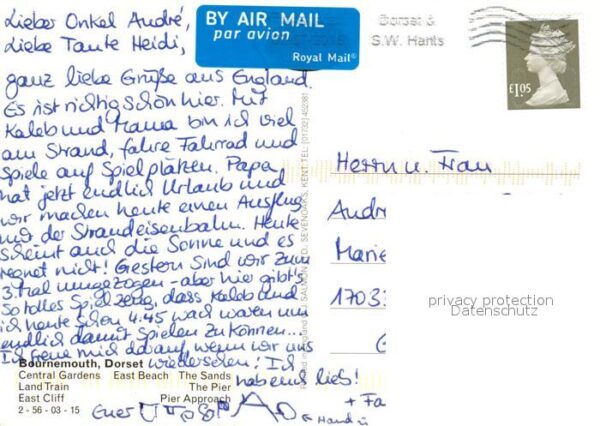 Lieber Onkel André,
liebe Tante Heidi,
ganz liebe Grüße aus England.
Es ist richtig schön hier. Mit
Kaleb und Mama bin ich viel
am Strand, fahre Fahrrad und
Spiele auf Spielplätzen. Papa
hat jetzt endlich Urlaub und
wir machen heute einen Ausflug
mit der Strandeisenbahn. Heute
scheint auch die Sonne und es
regnet nicht! Gestern sind wir zum
3. mal umgezogen - aber hier gibt's
so tolles Spielzeug, dass Kaleb und
ich heute schon 4:45 wach waren um
endlich damit spielen zu können...
Ich freue mich darauf wenn wir uns
wiedersehen! Ich
hab euch lieb!
Euer
BY AIR MAIL
par avion
Royal Mail
Dorset &
S.W. Hants
£1.05
Herrn u. Frau
André
Marie
1703
privacy protection
Datenschutz
SEVENOAKS, KENT. TEL. (01732) 452381
Bournemouth, Dorset
Central Gardens East Beach The Sands
Land Train The Pier
East Cliff Pier Approach
2 - 56 - 03 - 15